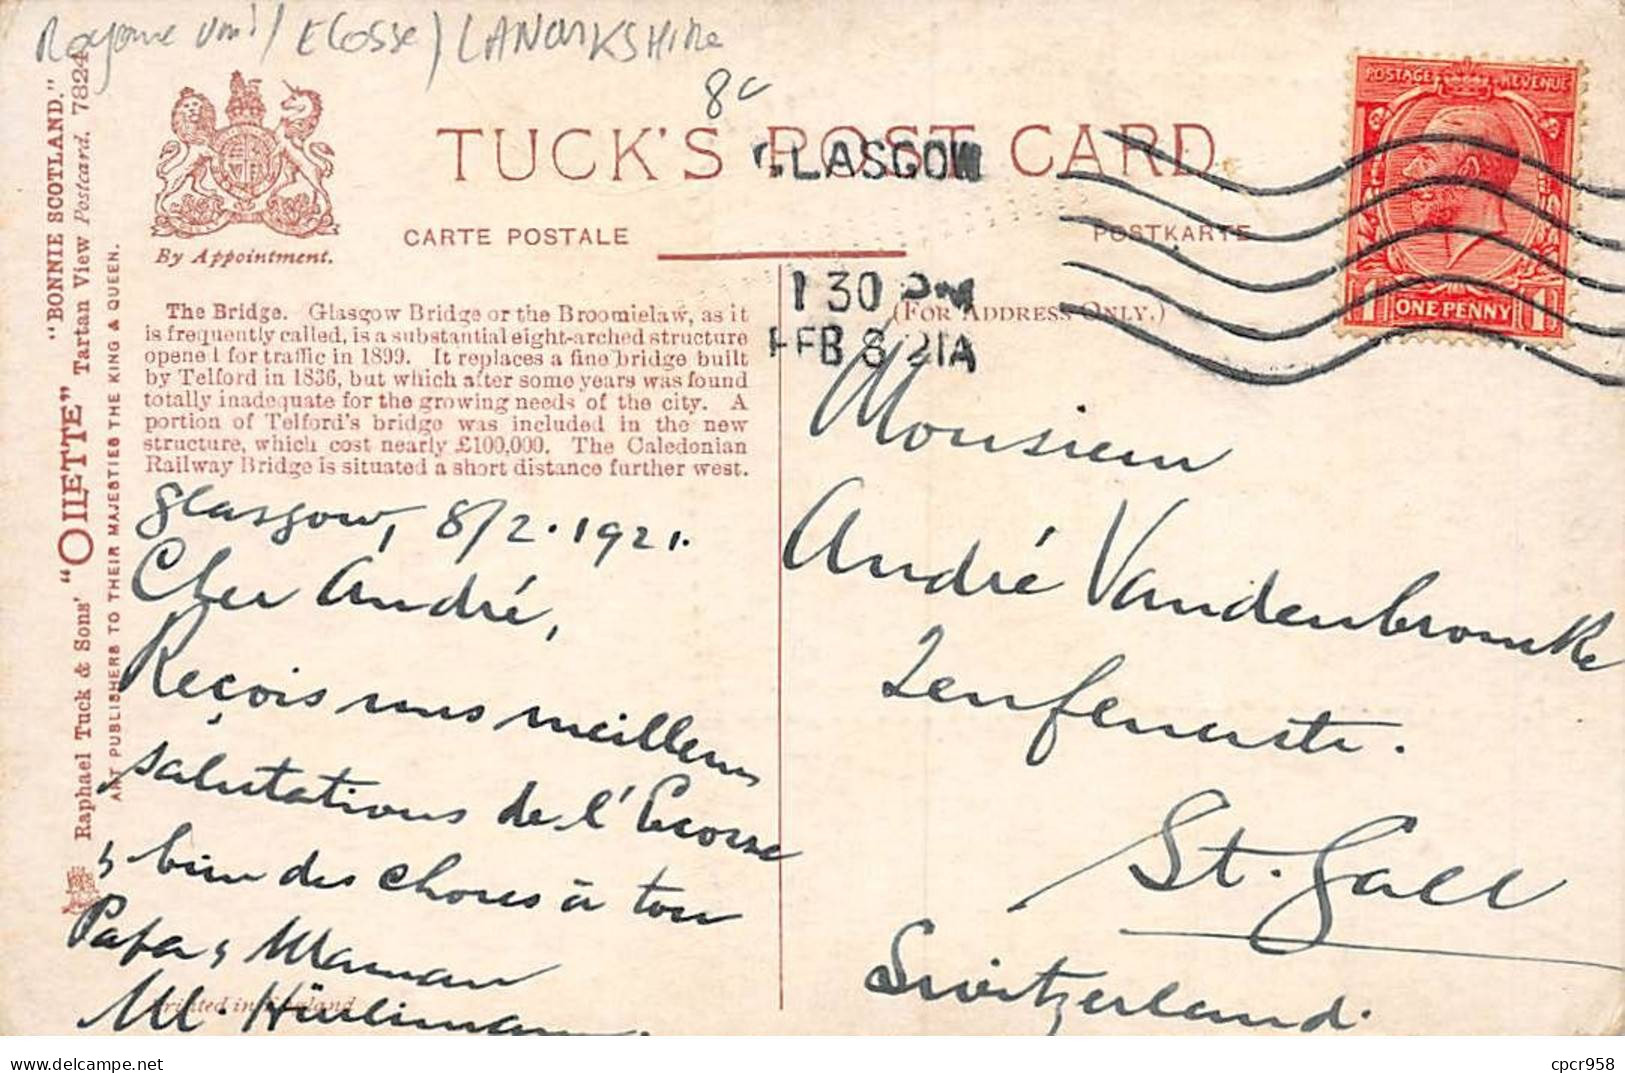 Royaume Uni / Ecosse / LANARKSHIRE
8c
"BONNIE SCOTLAND."
Raphael Tuck & Sons' "OILETTE" Tartan View Postcard. 7824
ART PUBLISHERS TO THEIR MAJESTIES THE KING & QUEEN.
By Appointment.
TUCK'S POST CARD
CARTE POSTALE
POSTKARTE
(FOR ADDRESS ONLY.)
GLASGOW
1 30 PM
FEB 8 21A
POSTAGE REVENUE
1 ONE PENNY 1
The Bridge. Glasgow Bridge or the Broomielaw, as it
is frequently called, is a substantial eight-arched structure
opened for traffic in 1899. It replaces a fine bridge built
by Telford in 1836, but which after some years was found
totally inadequate for the growing needs of the city. A
portion of Telford's bridge was included in the new
structure, which cost nearly £100,000. The Caledonian
Railway Bridge is situated a short distance further west.
Glasgow, 8/2.1921.
Cher André,
Reçois mes meilleurs
salutations de l'Ecosse
& bien des choses à ton
Papa & Maman
Hürlimann
Printed in England
Monsieur
André Vandenbrouck
St. Gall
Switzerland.
cpcr958